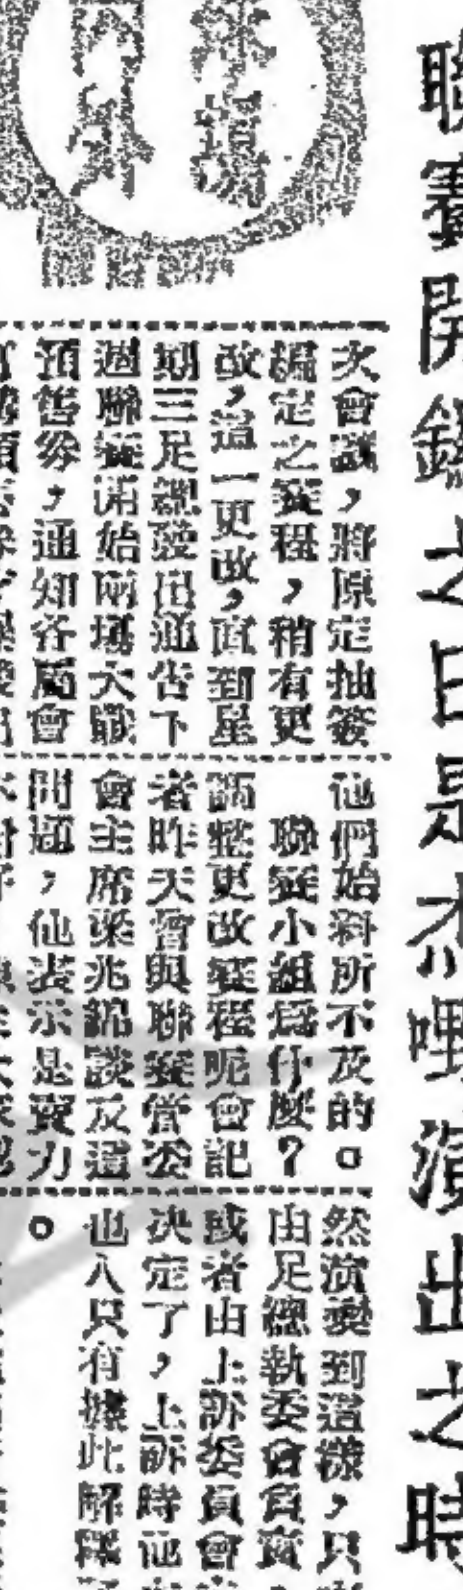 聯賽開鑼之日是杰嘢演出之時
球場
內外
次會議，將原定抽簽
編定之賽程，稍有更
改，這一更改，直到星
期三足總發出通告下
週聯賽開始兩場大戰
預售券，通知各屬會
他們始料所不及的。
聯賽小組為什麼？
調整更改賽程呢會記
者昨天曾與聯賽管委
會主席梁兆錦談及這
問題，他表示是賣力
然演變到這樣，只
由足總執委會負責
或者由上訴委員會
決定了，上訴時他
也入只有據此解釋
。